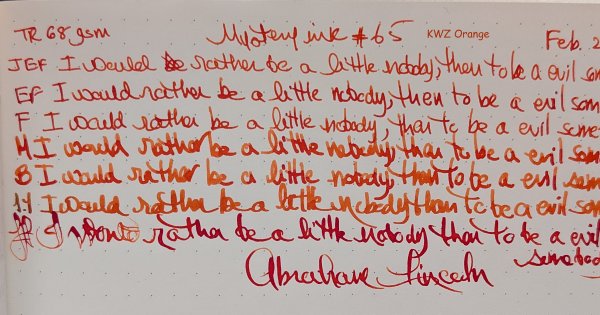 TR 68 gsm Mystery ink #65 KWZ Orange Feb. 2
JEF I would rather be a little nobody, then to be a evil som
EF I would rather be a little nobody, then to be a evil som
F I would rather be a little nobody, than to be a evil some
M I would rather be a little nobody than to be a evil som
B I would rather be a little nobody, than to be a evil som
1.1 I would rather be a little nobody than to be a evil som
I would rather be a little nobody than to be a evil
somebod
Abraham Lincoln